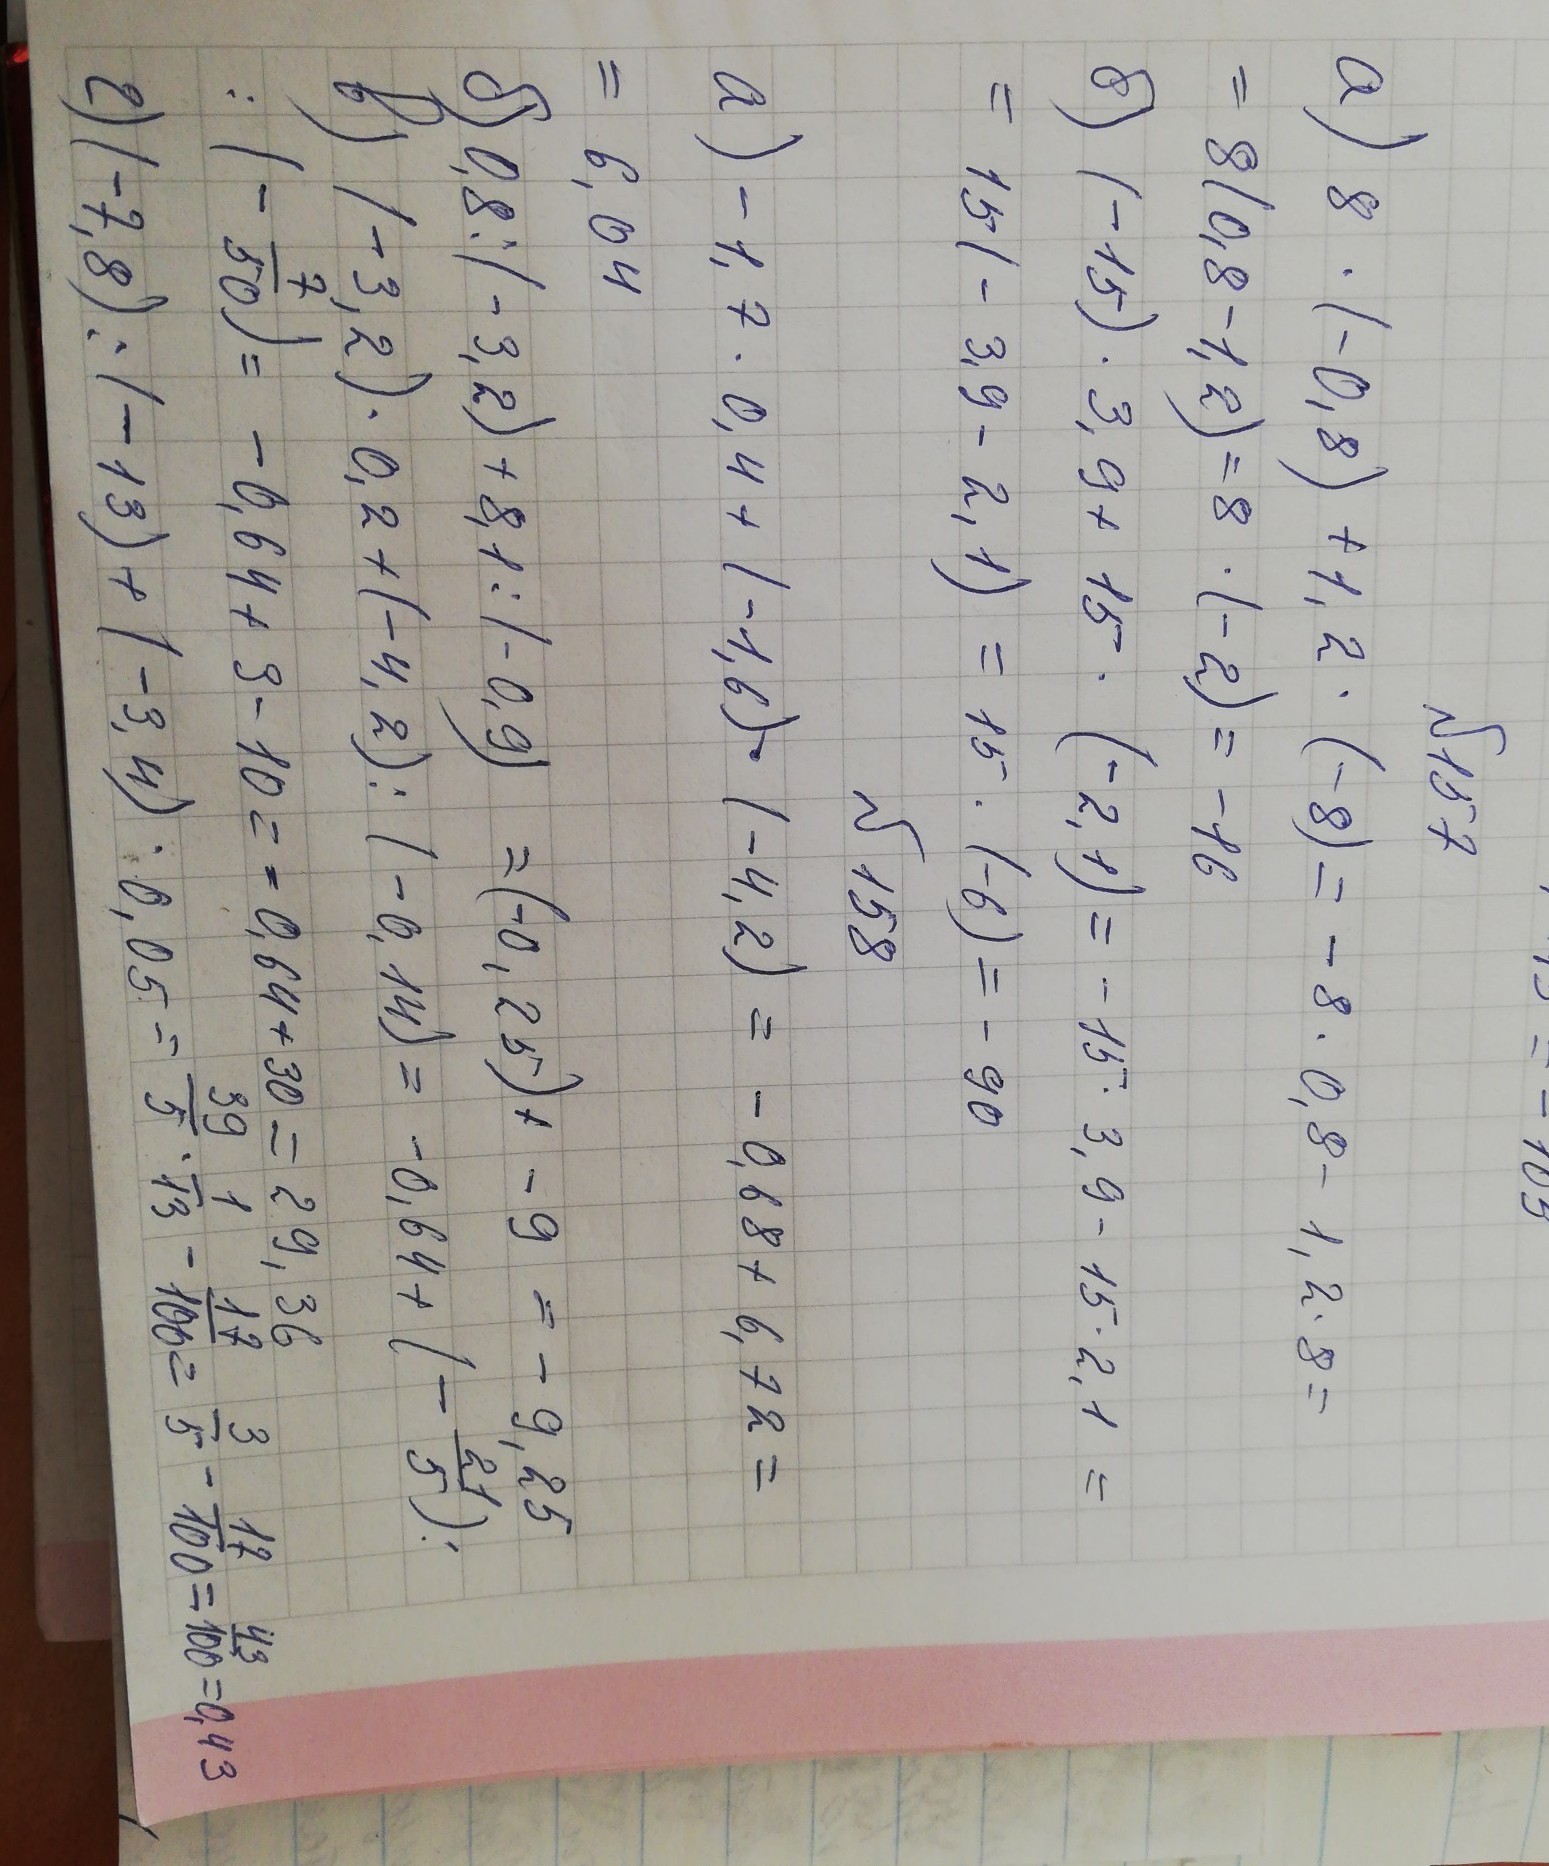 15 = -105
N157
а) 8 · (-0,8) + 1,2 · (-8) = -8 · 0,8 - 1,2 · 8 =
= 8(0,8-1,2) = 8 · (-2) = -16
б) (-15) · 3,9 + 15 · (-2,1) = -15 · 3,9 - 15 · 2,1 =
= 15(-3,9-2,1) = 15 · (-6) = -90
N158
а) -1,7 · 0,4 + (-1,6) · (-4,2) = -0,68 + 6,72 =
= 6,04
б) 0,8 : (-3,2) + 8,1 : (-0,9) = (-0,25) + -9 = -9,25
в) (-3,2) · 0,2 + (-4,2) : (-0,14) = -0,64 + (-21/5) :
: (-7/50) = -0,64 + 3 · 10 = -0,64 + 30 = 29,36
г) (-7,8) : (-13) + (-3,4) · 0,05 = 39/5 · 1/13 - 17/100 = 3/5 - 17/100 = 43/100 = 0,43